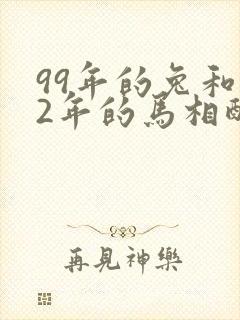 99年的兔和
2年的馬相配
再見神樂